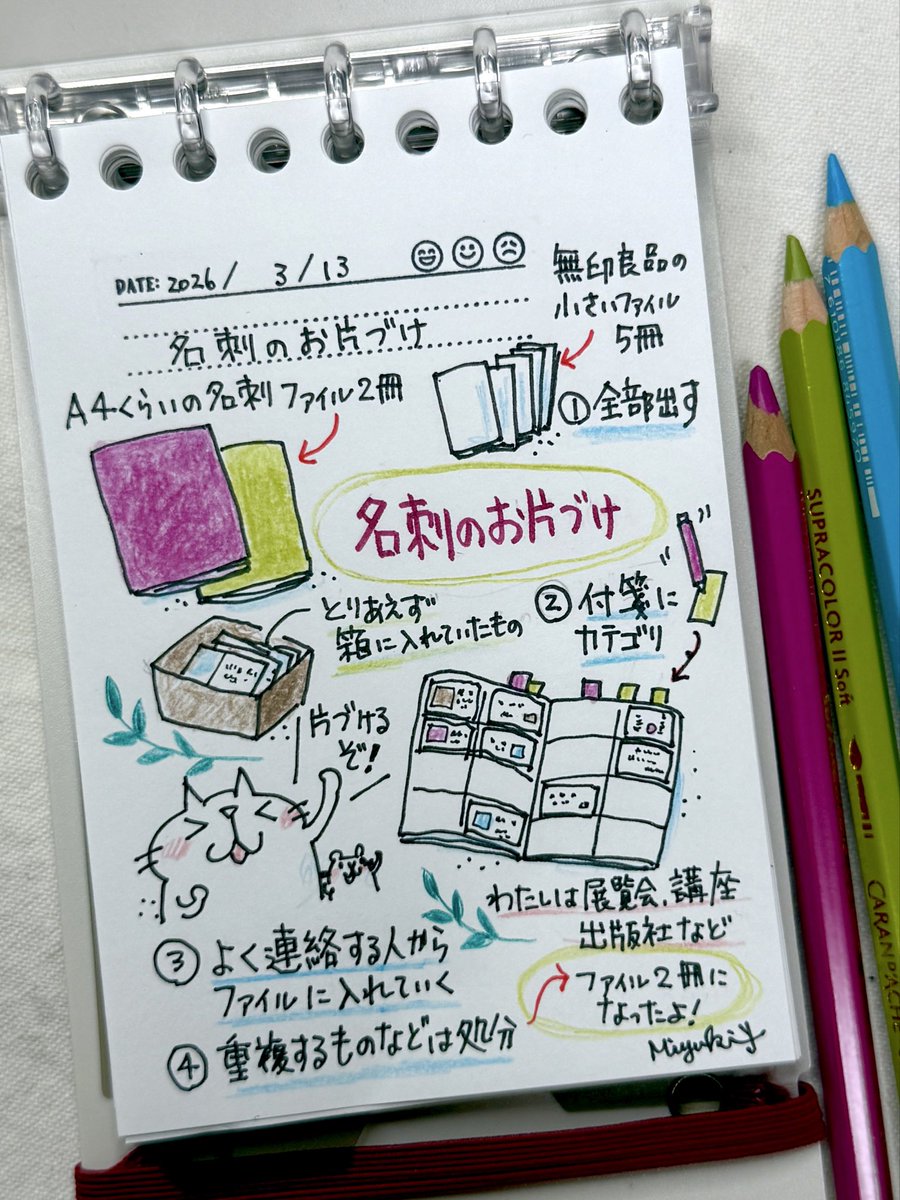 DATE: 2026/ 3/13
名刺のお片づけ
無印良品の
小さいファイル
5冊
A4くらいの名刺ファイル2冊
①全部出す
名刺のお片づけ
とりあえず
箱に入れていたもの
②付箋に
カテゴリ
片づける
ぞ!
わたしは展覧会、講座
出版社など
③よく連絡する人から
ファイルに入れていく
④重複するものなどは処分
ファイル2冊に
なったよ!
MiyukiY
SUPRACOLOR II Soft
CARAN D'ACHE